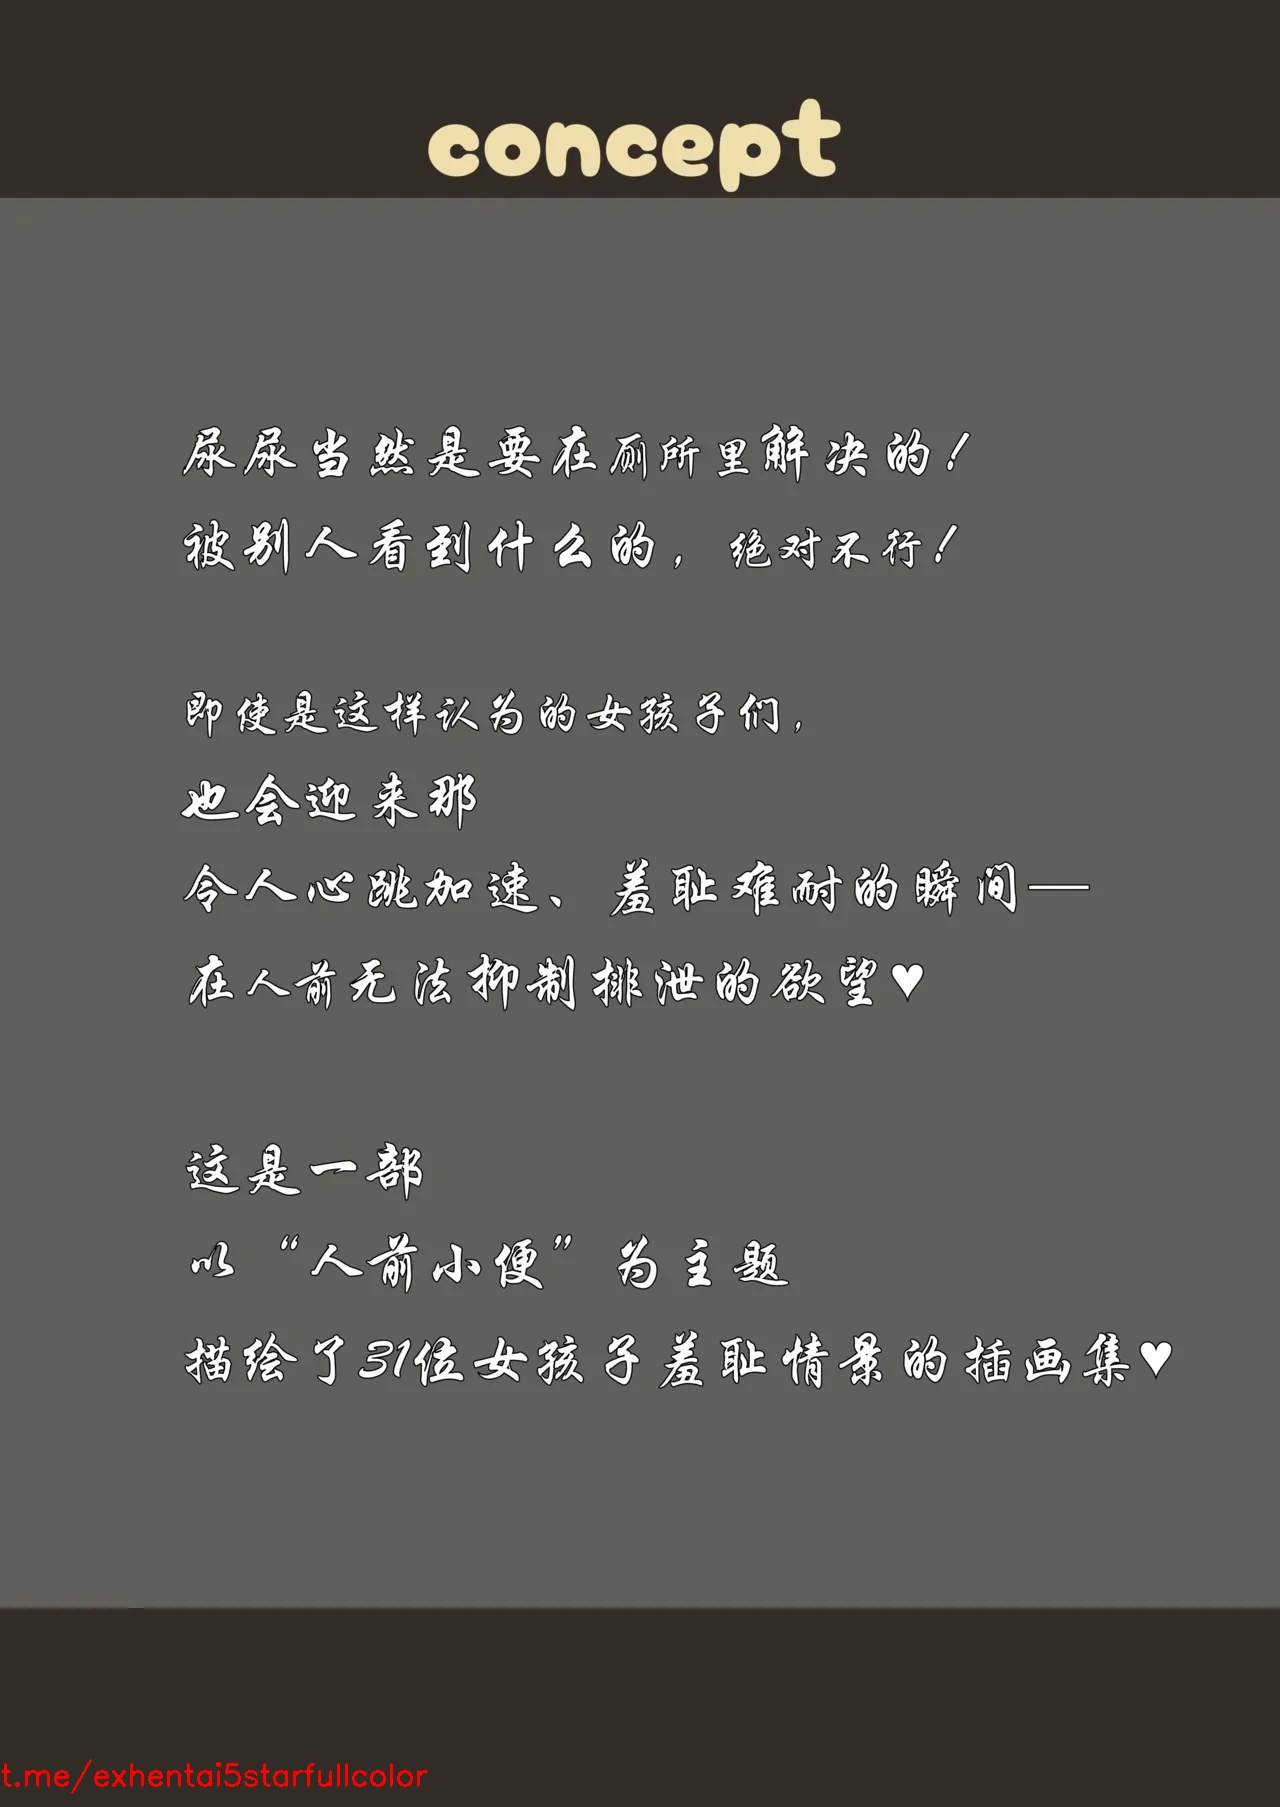 concept
尿尿当然是要在厕所里解决的！
被别人看到什么的，绝对不行！
即使是这样认为的女孩子们，
也会迎来那
令人心跳加速、羞耻难耐的瞬间—
在人前无法抑制排泄的欲望♥
这是一部
以“人前小便”为主题
描绘了31位女孩子羞耻情景的插画集♥
t.me/exhentai5starfullcolor